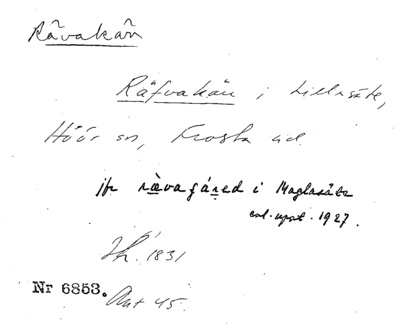 Rävakän
Räfvakän i Lillasäte,
Höör sn, Frosta hd
jfr rævagáred i Maglasäte
enl. uppt. 1927.
Jk. 1831
Nr 6853. Ant 45.